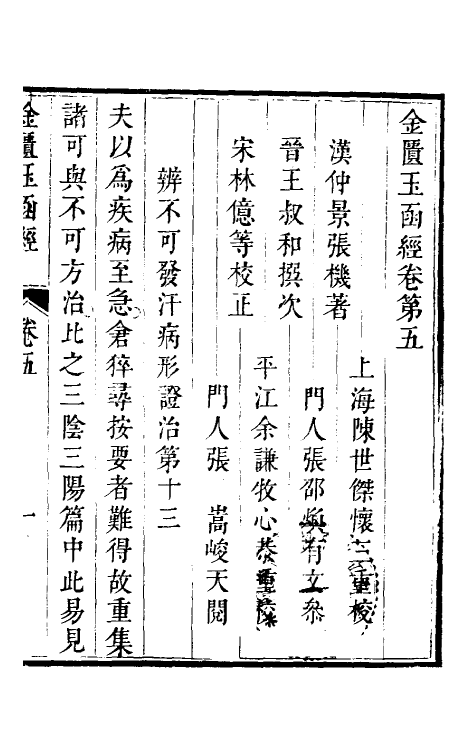 金匱玉函經卷第五
漢仲景張機著
晉王叔和撰次
宋林億等校正
上海陳世傑懷三重校
門人張邵煥有文參
平江余謙牧心恭重校
門人張　嵩峻天閱
辨不可發汗病形證治第十三
夫以爲疾病至急倉猝尋按要者難得故重集
諸可與不可方治比之三陰三陽篇中此易見
金匱玉函經
卷五
一